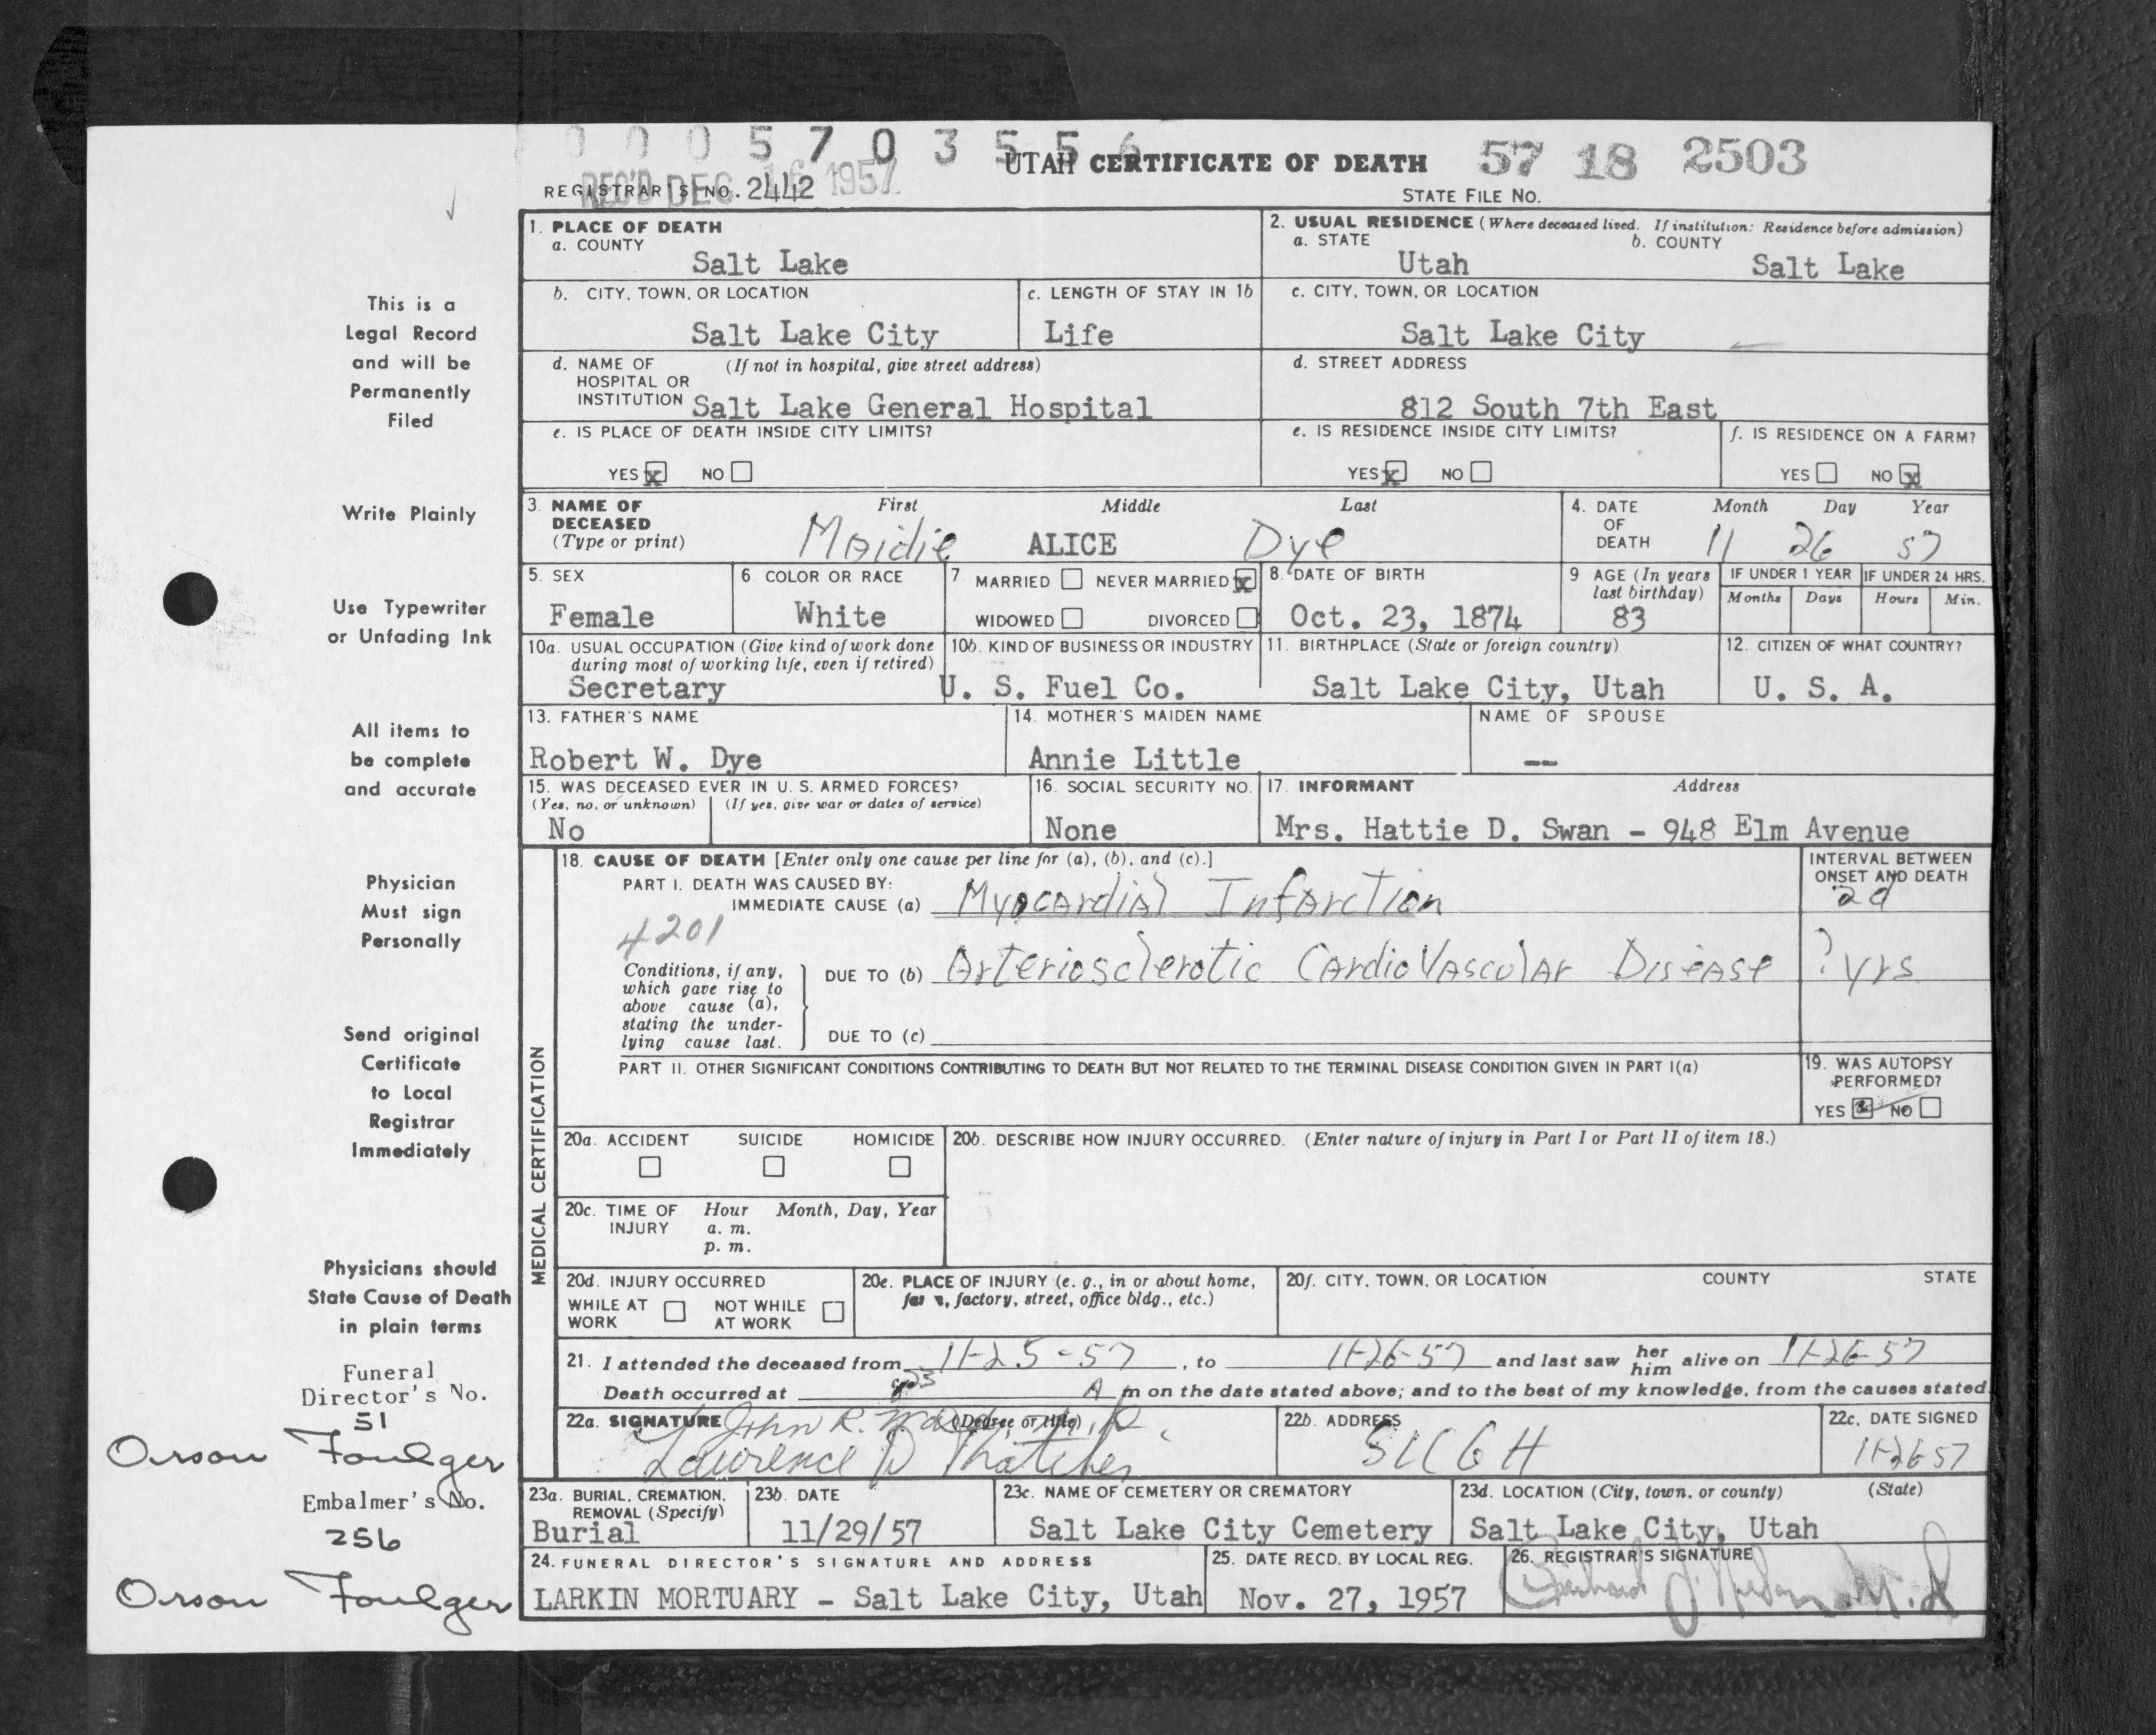 0 0 0 5 7 0 3 5 5 6
UTAH CERTIFICATE OF DEATH
57 18 2503
REC'D DEC 16 1957
REGISTRAR'S NO. 2442
STATE FILE NO.
1. PLACE OF DEATH
a. COUNTY
Salt Lake
2. USUAL RESIDENCE (Where deceased lived. If institution: Residence before admission)
a. STATE
Utah
b. COUNTY
Salt Lake
b. CITY, TOWN, OR LOCATION
Salt Lake City
c. LENGTH OF STAY IN 1b
Life
c. CITY, TOWN, OR LOCATION
Salt Lake City
d. NAME OF (If not in hospital, give street address)
HOSPITAL OR
INSTITUTION Salt Lake General Hospital
d. STREET ADDRESS
812 South 7th East
e. IS PLACE OF DEATH INSIDE CITY LIMITS?
YES x NO
e. IS RESIDENCE INSIDE CITY LIMITS?
YES x NO
f. IS RESIDENCE ON A FARM?
YES NO x
3. NAME OF
DECEASED
(Type or print)
First Middle Last
Maidie ALICE Dye
4. DATE
OF
DEATH
Month Day Year
11 26 57
5. SEX
Female
6. COLOR OR RACE
White
7. MARRIED NEVER MARRIED x
WIDOWED DIVORCED
8. DATE OF BIRTH
Oct. 23, 1874
9 AGE (In years
last birthday)
83
IF UNDER 1 YEAR
Months Days
IF UNDER 24 HRS.
Hours Min.
10a. USUAL OCCUPATION (Give kind of work done
during most of working life, even if retired)
Secretary
10b. KIND OF BUSINESS OR INDUSTRY
U. S. Fuel Co.
11. BIRTHPLACE (State or foreign country)
Salt Lake City, Utah
12. CITIZEN OF WHAT COUNTRY?
U. S. A.
13. FATHER'S NAME
Robert W. Dye
14. MOTHER'S MAIDEN NAME
Annie Little
NAME OF SPOUSE
--
15. WAS DECEASED EVER IN U. S. ARMED FORCES?
(Yes, no, or unknown) (If yes, give war or dates of service)
No
16. SOCIAL SECURITY NO.
None
17. INFORMANT Address
Mrs. Hattie D. Swan - 948 Elm Avenue
MEDICAL CERTIFICATION
18. CAUSE OF DEATH [Enter only one cause per line for (a), (b), and (c).]
INTERVAL BETWEEN
ONSET AND DEATH
PART I. DEATH WAS CAUSED BY:
IMMEDIATE CAUSE (a) Myocardial Infarction 2d
4201
Conditions, if any,
which gave rise to
above cause (a),
stating the under-
lying cause last.
DUE TO (b) Arteriosclerotic CardioVascular Disease ? yrs
DUE TO (c)
PART II. OTHER SIGNIFICANT CONDITIONS CONTRIBUTING TO DEATH BUT NOT RELATED TO THE TERMINAL DISEASE CONDITION GIVEN IN PART I(a)
19. WAS AUTOPSY
PERFORMED?
YES NO
20a. ACCIDENT SUICIDE HOMICIDE
20b. DESCRIBE HOW INJURY OCCURRED. (Enter nature of injury in Part I or Part II of item 18.)
20c. TIME OF Hour Month, Day, Year
INJURY a. m.
p. m.
20d. INJURY OCCURRED
WHILE AT NOT WHILE
WORK AT WORK
20e. PLACE OF INJURY (e. g., in or about home,
farm, factory, street, office bldg., etc.)
20f. CITY, TOWN, OR LOCATION COUNTY STATE
21. I attended the deceased from 11-25-57, to 11-26-57 and last saw her him alive on 11-26-57
Death occurred at A m on the date stated above; and to the best of my knowledge, from the causes stated.
22a. SIGNATURE (Degree or title)
John R.
Lawrence D Thatcher
22b. ADDRESS
SLCGH
22c. DATE SIGNED
11-26 57
23a. BURIAL, CREMATION,
REMOVAL (Specify)
Burial
23b. DATE
11/29/57
23c. NAME OF CEMETERY OR CREMATORY
Salt Lake City Cemetery
23d. LOCATION (City, town, or county) (State)
Salt Lake City, Utah
24. FUNERAL DIRECTOR'S SIGNATURE AND ADDRESS
LARKIN MORTUARY - Salt Lake City, Utah
25. DATE RECD. BY LOCAL REG.
Nov. 27, 1957
26. REGISTRAR'S SIGNATURE
This is a
Legal Record
and will be
Permanently
Filed
Write Plainly
Use Typewriter
or Unfading Ink
All items to
be complete
and accurate
Physician
Must sign
Personally
Send original
Certificate
to Local
Registrar
Immediately
Physicians should
State Cause of Death
in plain terms
Funeral
Director's No.
51
Orson Foulger
Embalmer's No.
256
Orson Foulger